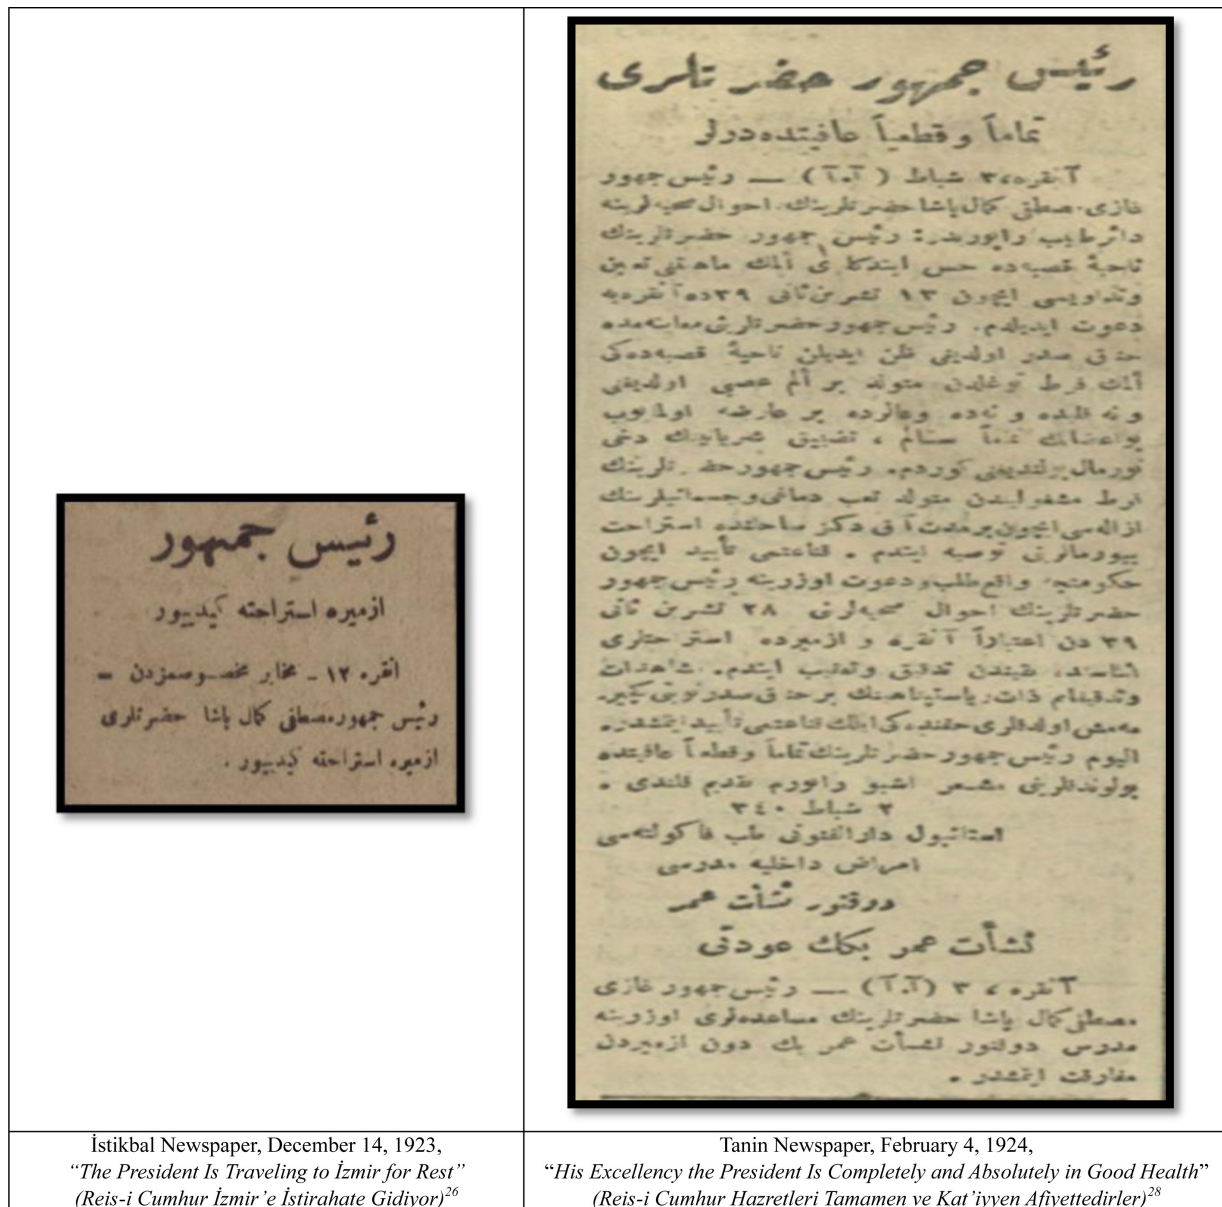 رئیس جمهور
ازمیره استراحته کیدییور
انقره ١٢ ـ مخابر مخصوصمزدن ـ
رئیس جمهور مصطفی کمال پاشا حضرتلری
ازمیره استراحته کیدییور .
İstikbal Newspaper, December 14, 1923,
“The President Is Traveling to İzmir for Rest”
(Reis-i Cumhur İzmir’e İstirahate Gidiyor)26
رئیس جمهور حضرتلری
تماماً و قطعیاً عافیتده‌درلر
آنقره، ٣ شباط ( آ.آ ) — رئیس جمهور
غازی مصطفی کمال پاشا حضرتلرینك احوال صحیه‌لرینه
دائر طبیب راپوریدر: رئیس جمهور حضرتلرینك
ناحیهٔ قصبه‌ده حس ایتدکلری ألمك ماهیتنی تعیین
وتداویسی ایچون ١٣ تشرین ثانی ٣٩ ده آنقره‌یه
دعوت ایدیلدم. رئیس جمهور حضرتلرینی معاینه‌مده
خناق صدر اولدیغی ظن ایدیلن ناحیهٔ قصبه‌ده‌کی
ألمك فرط توغلدن متولد بر ألم عصبی اولدیغنی
و نه قلبده و نه‌ده وعالرده بر عارضه اولمایوب
بو اعضانك تماماً سالم ، تضییق شریانینك دخی
نورمال بولندیغنی کوردم. رئیس جمهور حضرتلرینك
فرط مشغولیتدن متولد تعب دماغی وجسمانیلرینك
ازاله‌سی ایچون بر مدت آق دکز ساحلنده استراحت
بیورمالرینی توصیه ایتدم . قناعتمی تأیید ایچون
حکومتجه واقع طلب ودعوت اوزرینه رئیس جمهور
حضرتلرینك احوال صحیه‌لرینی ٢٨ تشرین ثانی
٣٩ دن اعتباراً آنقره و ازمیرده استراحتلری
اثناسنده یقیندن تدقیق وتعقیب ایتدم. مشاهدات
وتدقیقاتم ذات ریاستپناهینك بر خناق صدر نوبتی کچیر-
مه‌مش اولدقلری حقنده‌کی ایلك قناعتمی تأیید ایتمشدر.
الیوم رئیس جمهور حضرتلرینك تماماً و قطعیاً عافیتده
بولوندقلرینی مشعر اشبو راپورم تقدیم قلندی .
٢ شباط ٣٤٠
استانبول دارالفنونی طب فاکولته‌سی
امراض داخلیه مدرسی
دوقتور نشأت عمر
نشأت عمر بكك عودتی
آنقره ، ٣ (آ.آ) — رئیس جمهور غازی
مصطفی کمال پاشا حضرتلرینك مساعده‌لری اوزرینه
مدرس دوقتور نشأت عمر بك دون ازمیردن
مفارقت ایتمشدر .
Tanin Newspaper, February 4, 1924,
“His Excellency the President Is Completely and Absolutely in Good Health”
(Reis-i Cumhur Hazretleri Tamamen ve Kat’iyyen Afiyettedirler)28